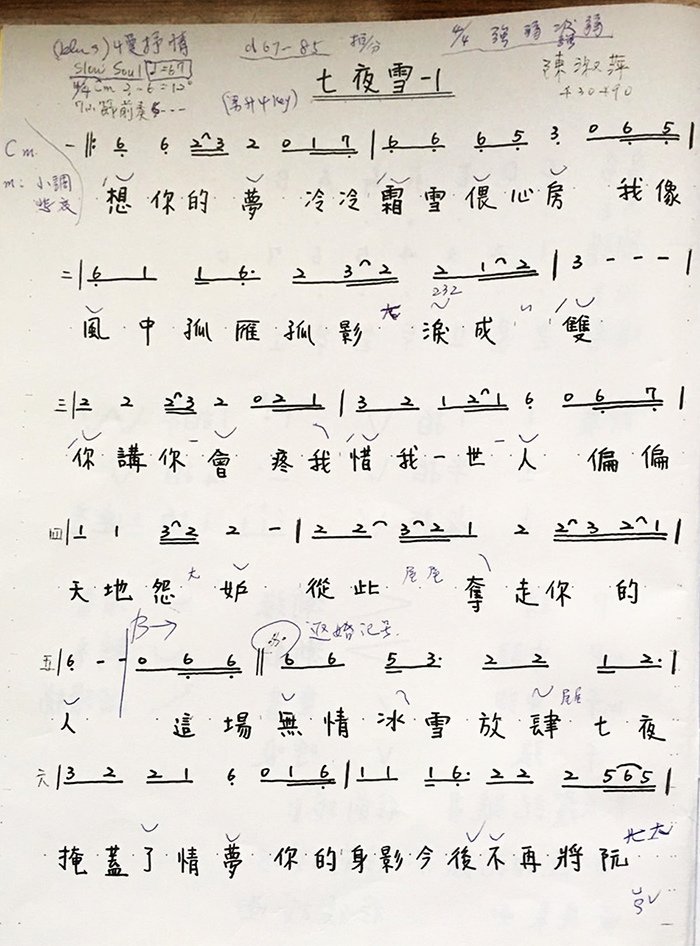 (blues) 慢抒情
d67-85
4/4 強弱次強弱
Slow Soul ♩=67
七夜雪-1
陳淑萍
4/4 Cm 2-6=12°
7小節前奏
(另升4key)
+30+90
Cm
m:小調
一 ‖: 6 6 2 3 2 0 1 7 | 6 6 6 5 3 0 6 5 |
想你的夢 冷冷霜雪偎心房 我像
二 | 6 1 1 6· 2 3 2 2 1 2 | 3 - - - |
232
風中孤雁孤影 淚成 雙
三 | 2 2 2 3 2 0 2 1 | 3 2 1 2 1 6 0 6 7 |
你講你會 疼我惜我一世人 偏偏
四 | 1 1 3 2 2 - | 2 2 3 2 1 2 2 3 2 1 |
天地怨妒 從此 奪走你的
B→
返始記号
五 | 6 - - 0 6 6 ‖ 6 6 5 3· 2 2 1 2· |
人 這場無情冰雪放肆七夜
六 | 3 2 2 1 6 0 1 6 | 1 1 1 6· 2 2 2 5 6 5 |
掩蓋了情夢 你的身影今後不再將阮